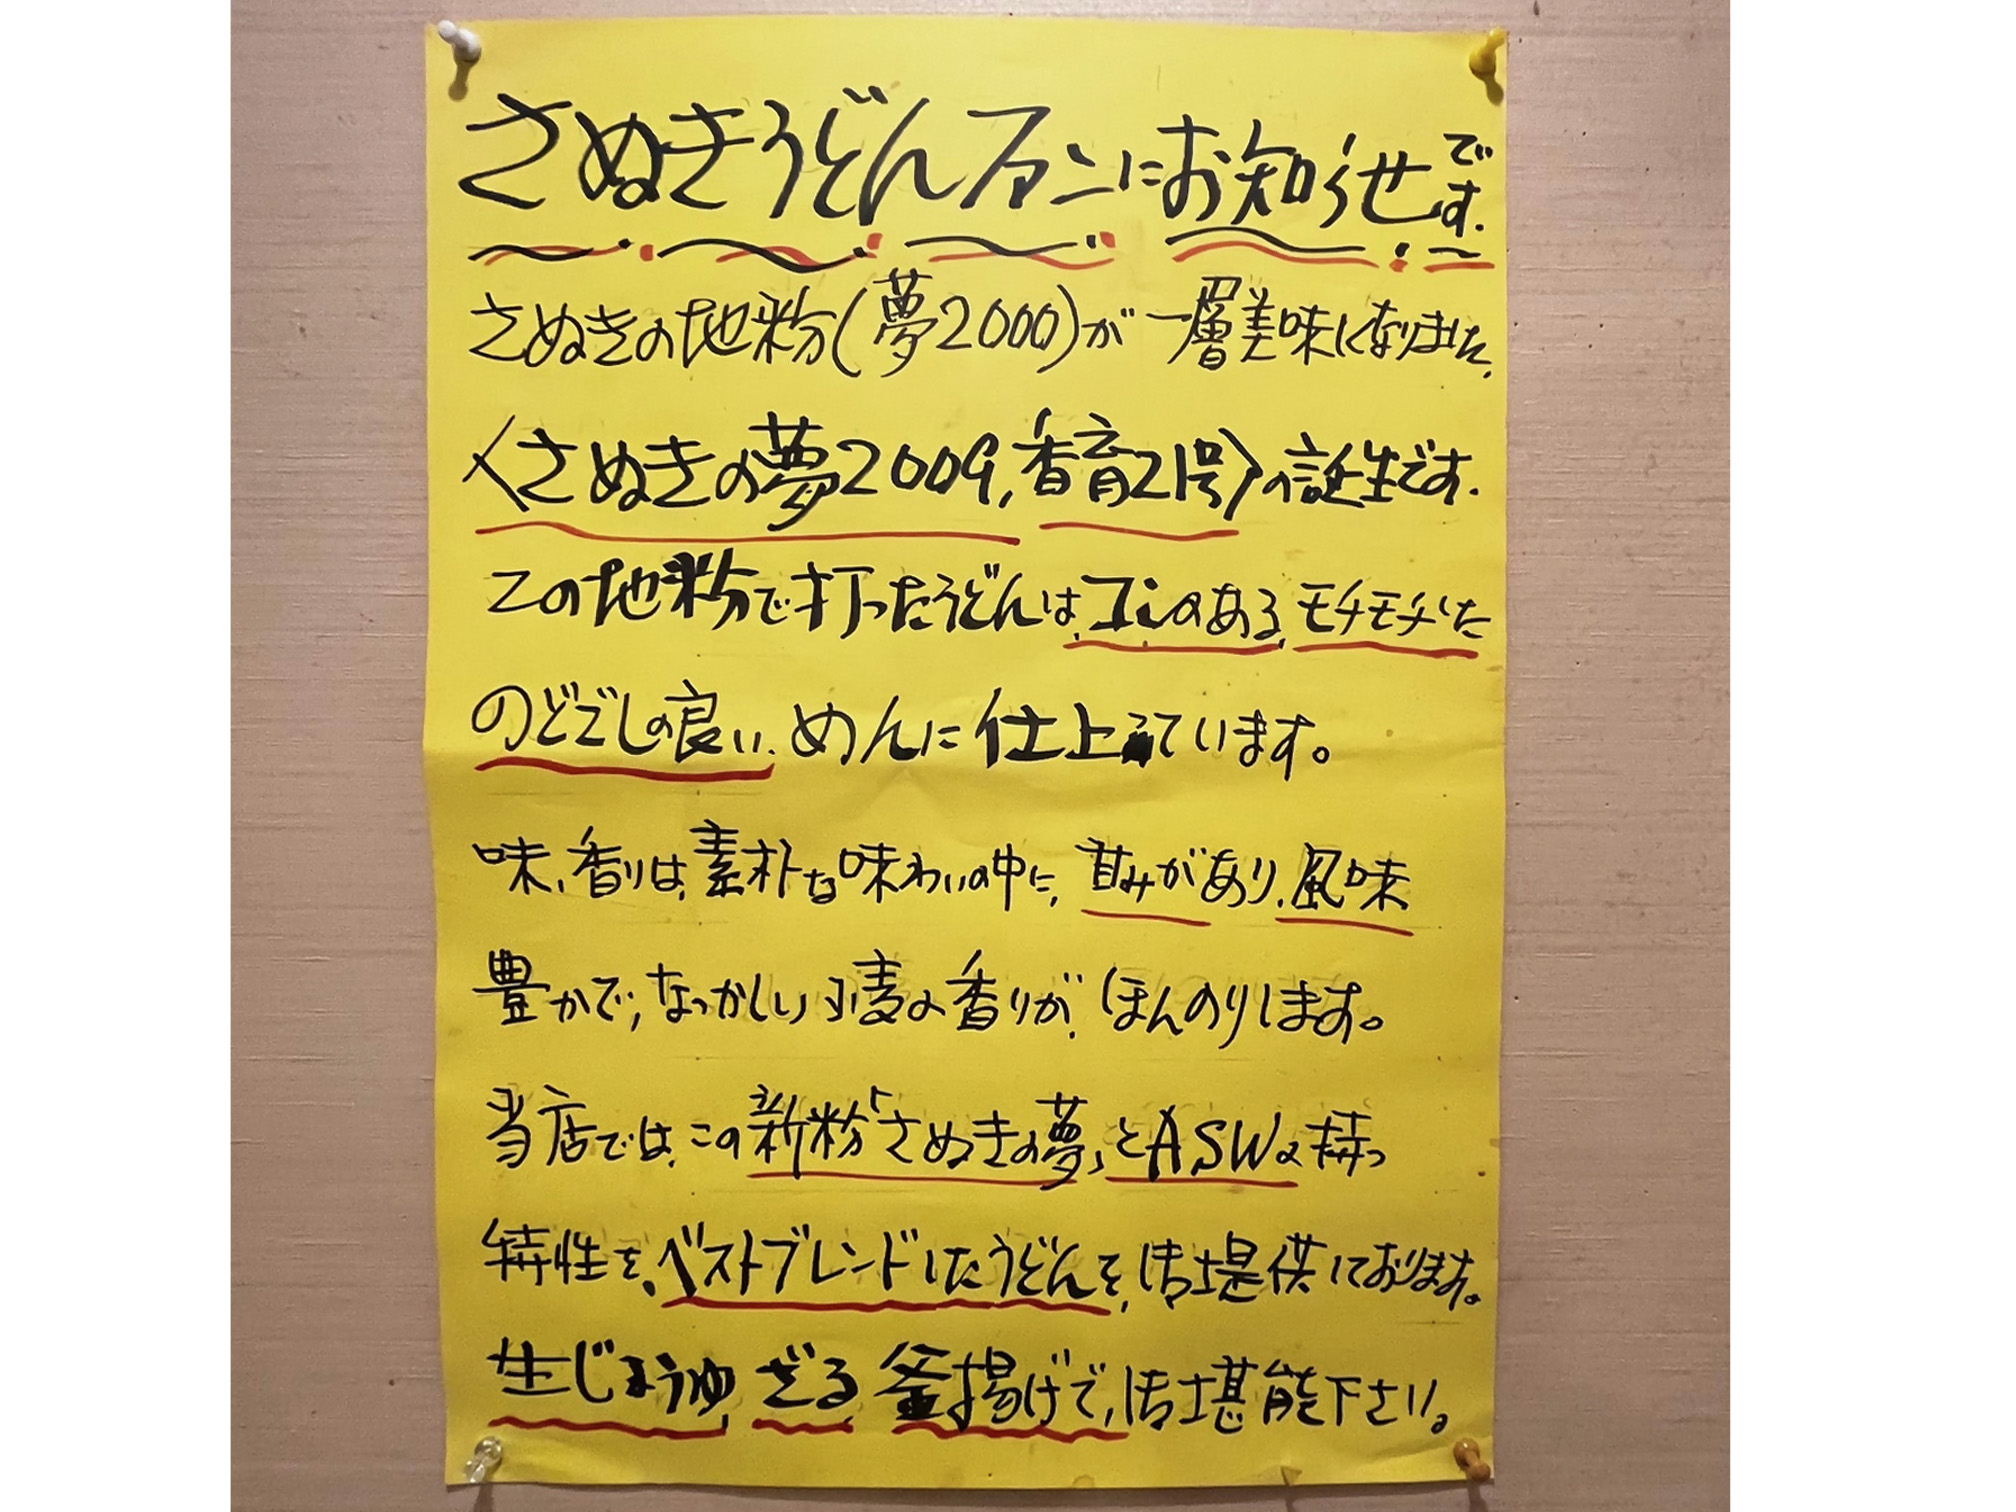 さぬきうどんファンにお知らせです.
さぬきの地粉(夢2000)が一層美味になりました.
〈さぬきの夢2009,香育21号〉の誕生です.
この地粉で打ったうどんは、コシのある、モチモチした
のどごしの良い、めんに仕上っています。
味、香りは、素朴な味わいの中に、甘みがあり、風味
豊かで、なつかしい小麦の香りが、ほんのりします。
当店では、この新粉「さぬきの夢」とASWの持つ
特性を、ベストブレンドしたうどんを、ご提供しております。
生じょうゆ、ざる、釜揚げで、ご堪能下さい。